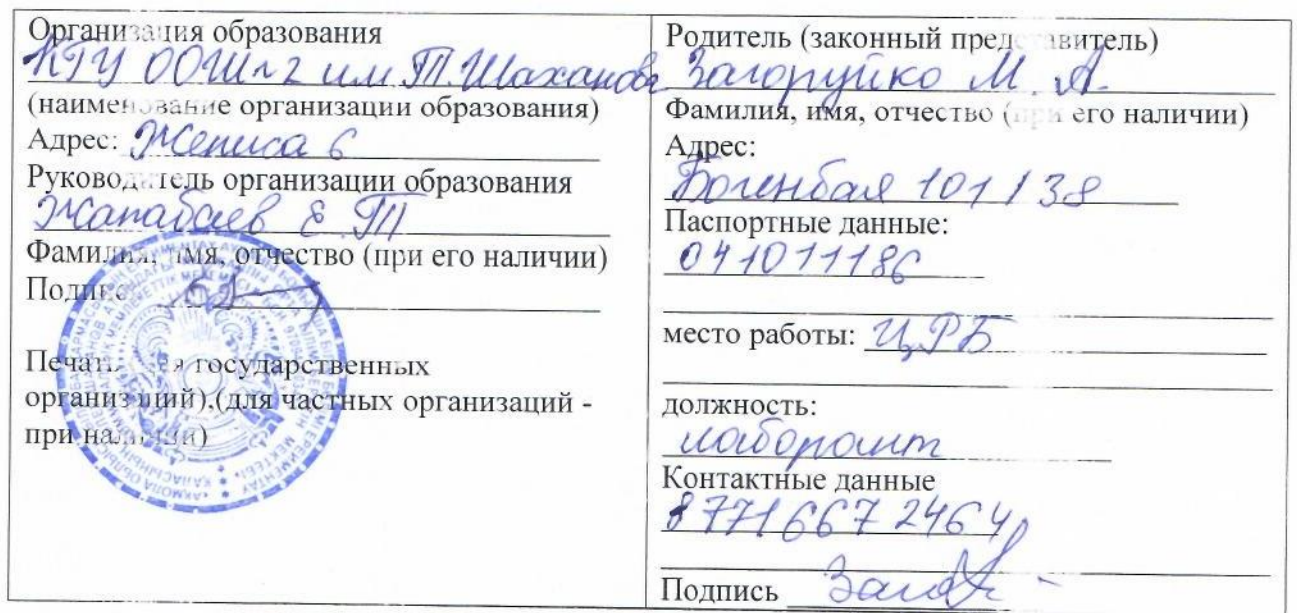 Организация образования
КГУ ООШ №2 им. Т. Шаханова
(наименование организации образования)
Адрес: Жениса 6
Руководитель организации образования
Жапабаев Е. Т
Фамилия, имя, отчество (при его наличии)
Подпись
Печать (для государственных
организаций),(для частных организаций -
при наличии)
Родитель (законный представитель)
Загоруйко М. А.
Фамилия, имя, отчество (при его наличии)
Адрес:
Богенбая 101 / 38
Паспортные данные:
041011186
место работы: ЦРБ
должность:
лаборант
Контактные данные
8 771 667 2464
Подпись Заго